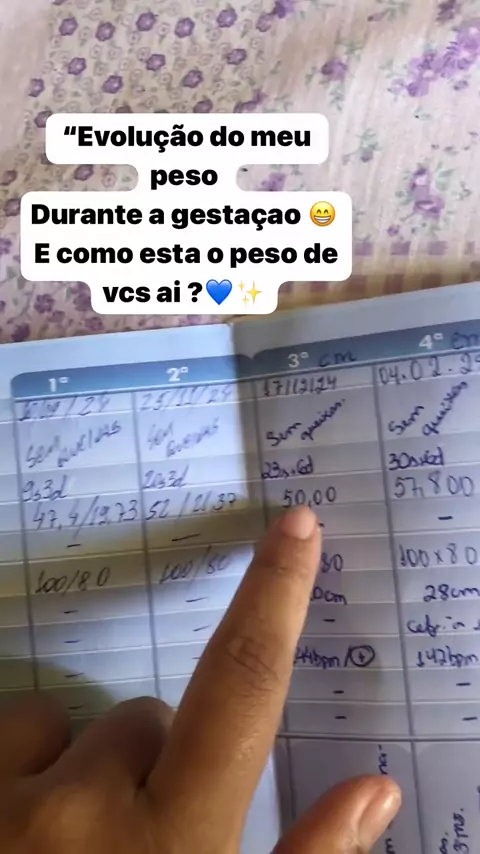 “Evolução do meu
peso
Durante a gestaçao 😁
E como esta o peso de
vcs ai ?💙✨
1° 2° 3° cm 4°
17/12/24 04.02.2
Sem queixas Sem queixas Sem queixas. Sem queixas
9s3d 20s3d 23s.6d 30s.6d
47,4/19,73 52/21,37 50,00 57,800
- - - -
100/80 100/80 80 100x80
- - 0cm 28cm
- - -
- - 44bpm/+ 142bpm
- - - -
- - - -